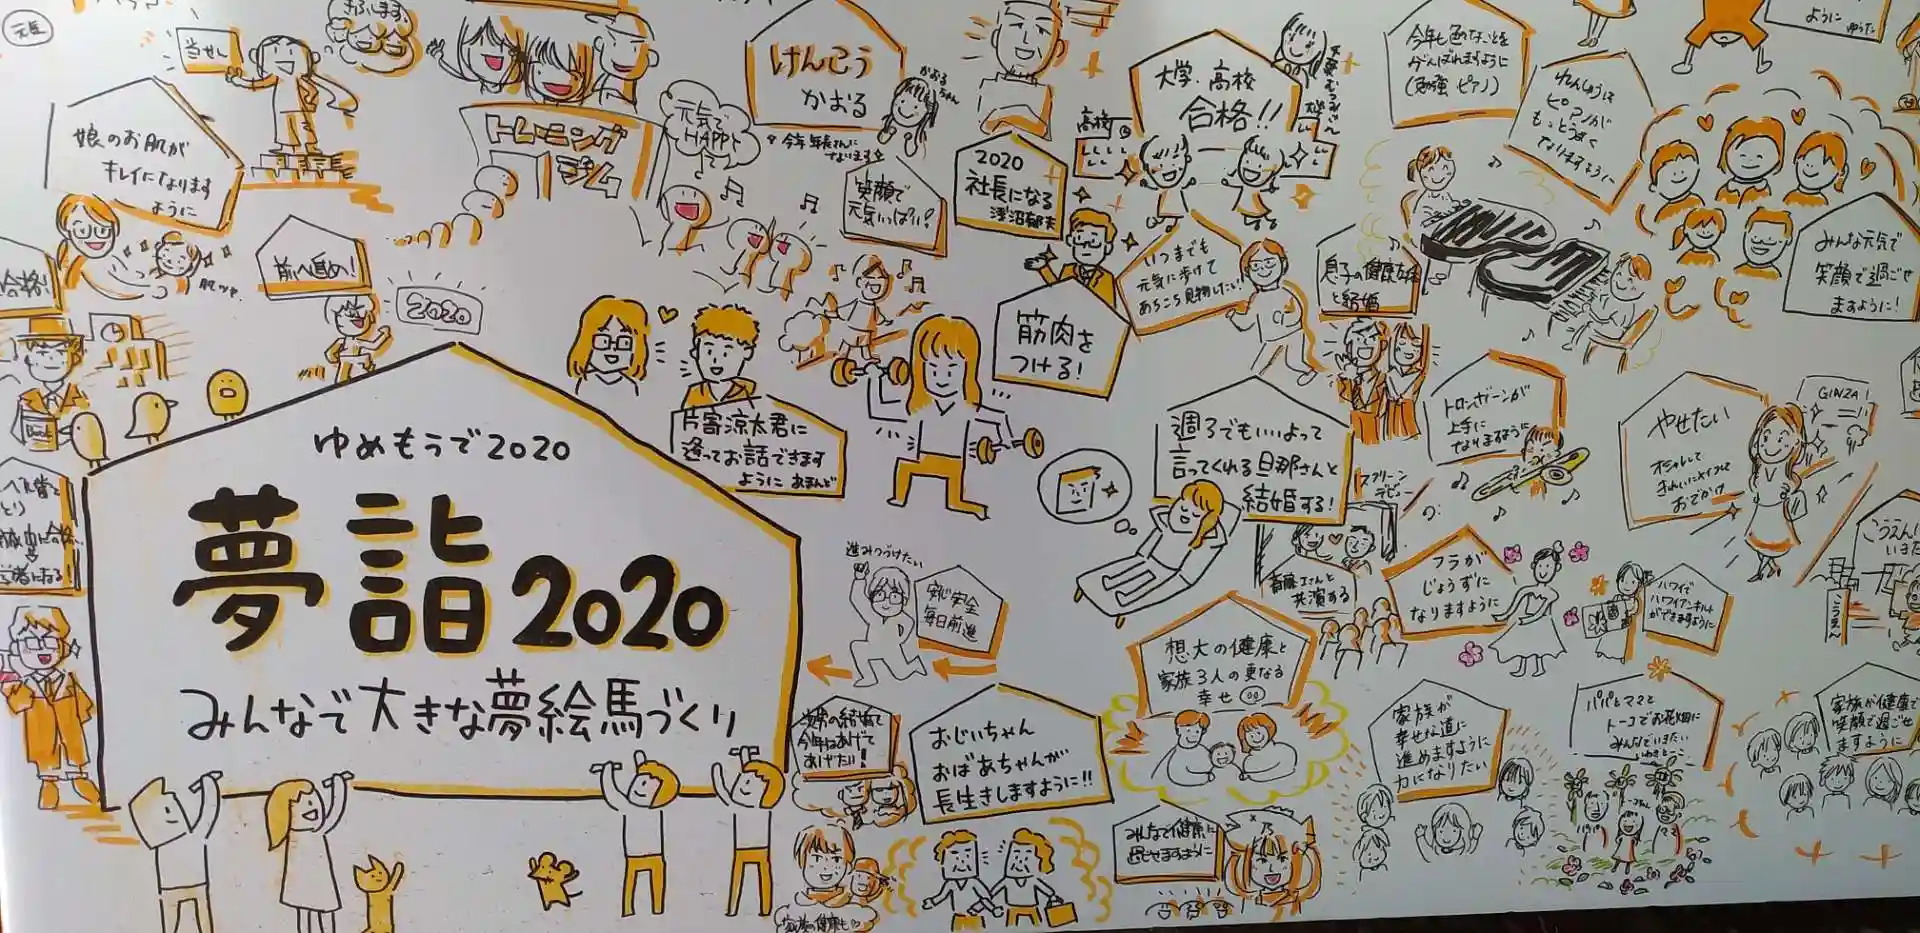 元気
当せん
娘のお肌が
キレイになります
ように
前へ進め!
2020
合格!
トレーニング
ジム
元気で
HAPPY
けんこう
かおる
かおるちゃん
今年 年長さんに
なります
笑顔で
元気いっぱい!
2020
社長になる
浅沼郁夫
大学・高校
合格!!
高校
いつまでも
元気に歩けて
あちこち見物したい!
息子の健康
と結婚
今年も色々なことを
がんばれますように
(勉強 ピアノ)
ピアノが
もっとうまく
なりますように
ように ゆうた
みんな元気で
笑顔で過ごせ
ますように!
筋肉を
つける!
片寄涼太君に
逢ってお話できます
ように
ゆめもうで2020
夢詣2020
みんなで大きな夢絵馬づくり
週3でもいいよって
言ってくれる旦那さんと
結婚する!
トロンボーンが
上手に
なりますように
やせたい
オシャレして
きれいにメイクして
おでかけ
GINZA!
スクリーン
デビュー
斎藤工さんと
共演する
フラが
じょうずに
なりますように
ハワイで
ができますように
こうえん
進みつづけたい
安心安全
毎日前進
想大の健康と
家族3人の更なる
幸せ
おじいちゃん
おばあちゃんが
長生きしますように!!
今年はあげて
あげたい!
家族の健康も
みんなで健康に
過ごせますように
家族が
幸せな道に
進めますように
力になりたい
パパとママと
トーコでお花畑に
みんなでいきたい
パパ
ママ
家族が健康で
笑顔で過ごせ
ますように